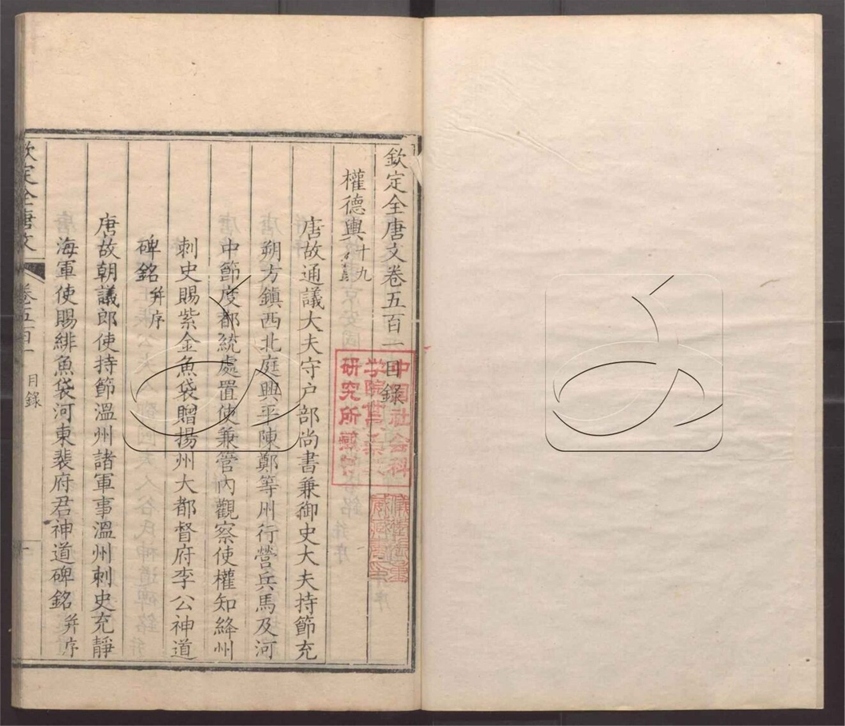 欽定全唐文卷五百一目錄
權德輿十九
唐故通議大夫守戶部尚書兼御史大夫持節充
朔方鎮西北庭興平陳鄭等州行營兵馬及河
中節度都統處置使兼管內觀察使權知絳州
刺史賜紫金魚袋贈揚州大都督府李公神道
碑銘并序
唐故朝議郎使持節溫州諸軍事溫州刺史充靜
海軍使賜緋魚袋河東裴府君神道碑銘并序
欽定全唐文
卷五百一
目錄
一
中国社会科
学院
研究所